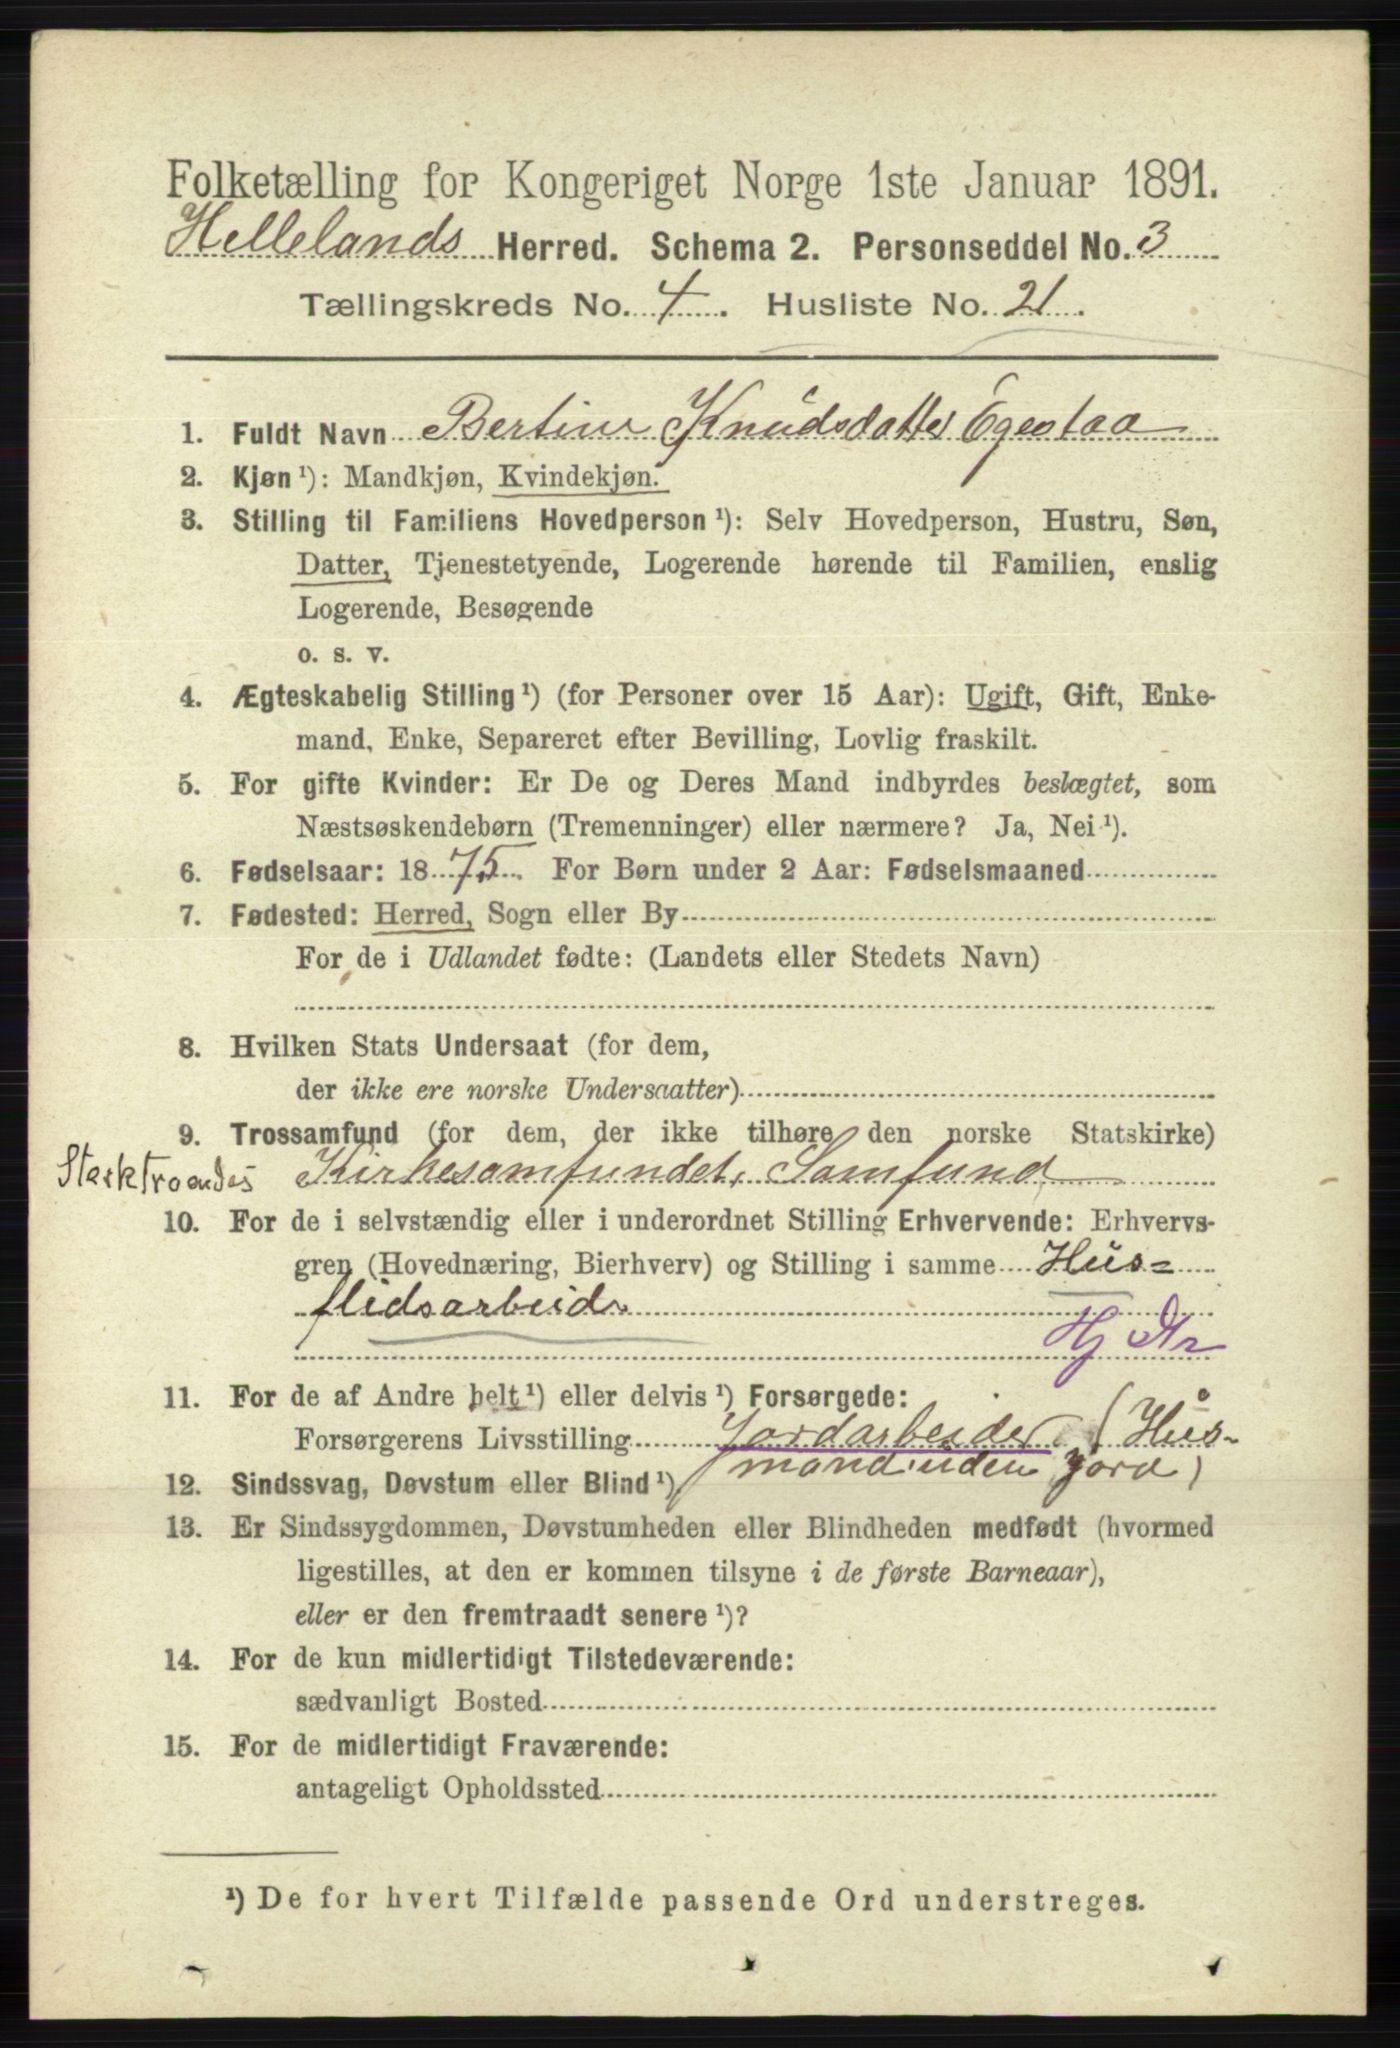 Folketælling for Kongeriget Norge 1ste Januar 1891.
Hellelands Herred. Schema 2. Personseddel No. 3
Tællingskreds No. 4. Husliste No. 21.
1. Fuldt Navn Bertine Knudsdatter Egestaa
2. Kjøn ¹): Mandkjøn, Kvindekjøn.
3. Stilling til Familiens Hovedperson ¹): Selv Hovedperson, Hustru, Søn,
Datter, Tjenestetyende, Logerende hørende til Familien, enslig
Logerende, Besøgende
o. s. v.
4. Ægteskabelig Stilling ¹) (for Personer over 15 Aar): Ugift, Gift, Enke-
mand, Enke, Separeret efter Bevilling, Lovlig fraskilt.
5. For gifte Kvinder: Er De og Deres Mand indbyrdes beslægtet, som
Næstsøskendebørn (Tremenninger) eller nærmere? Ja, Nei ¹).
6. Fødselsaar: 1875. For Børn under 2 Aar: Fødselsmaaned
7. Fødested: Herred, Sogn eller By
For de i Udlandet fødte: (Landets eller Stedets Navn)
8. Hvilken Stats Undersaat (for dem,
der ikke ere norske Undersaatter)
9. Trossamfund (for dem, der ikke tilhøre den norske Statskirke)
Sterktroendes Kirkesamfundet, Samfund
10. For de i selvstændig eller i underordnet Stilling Erhvervende: Erhvervs-
gren (Hovednæring, Bierhverv) og Stilling i samme Hus=
flidsarbeide
Hj Ar
11. For de af Andre helt ¹) eller delvis ¹) Forsørgede:
Forsørgerens Livsstilling Jordarbeider (Hus-
mand uden jord)
12. Sindssvag, Døvstum eller Blind ¹)
13. Er Sindssygdommen, Døvstumheden eller Blindheden medfødt (hvormed
ligestilles, at den er kommen tilsyne i de første Barneaar),
eller er den fremtraadt senere ¹)?
14. For de kun midlertidigt Tilstedeværende:
sædvanligt Bosted
15. For de midlertidigt Fraværende:
antageligt Opholdssted
¹) De for hvert Tilfælde passende Ord understreges.